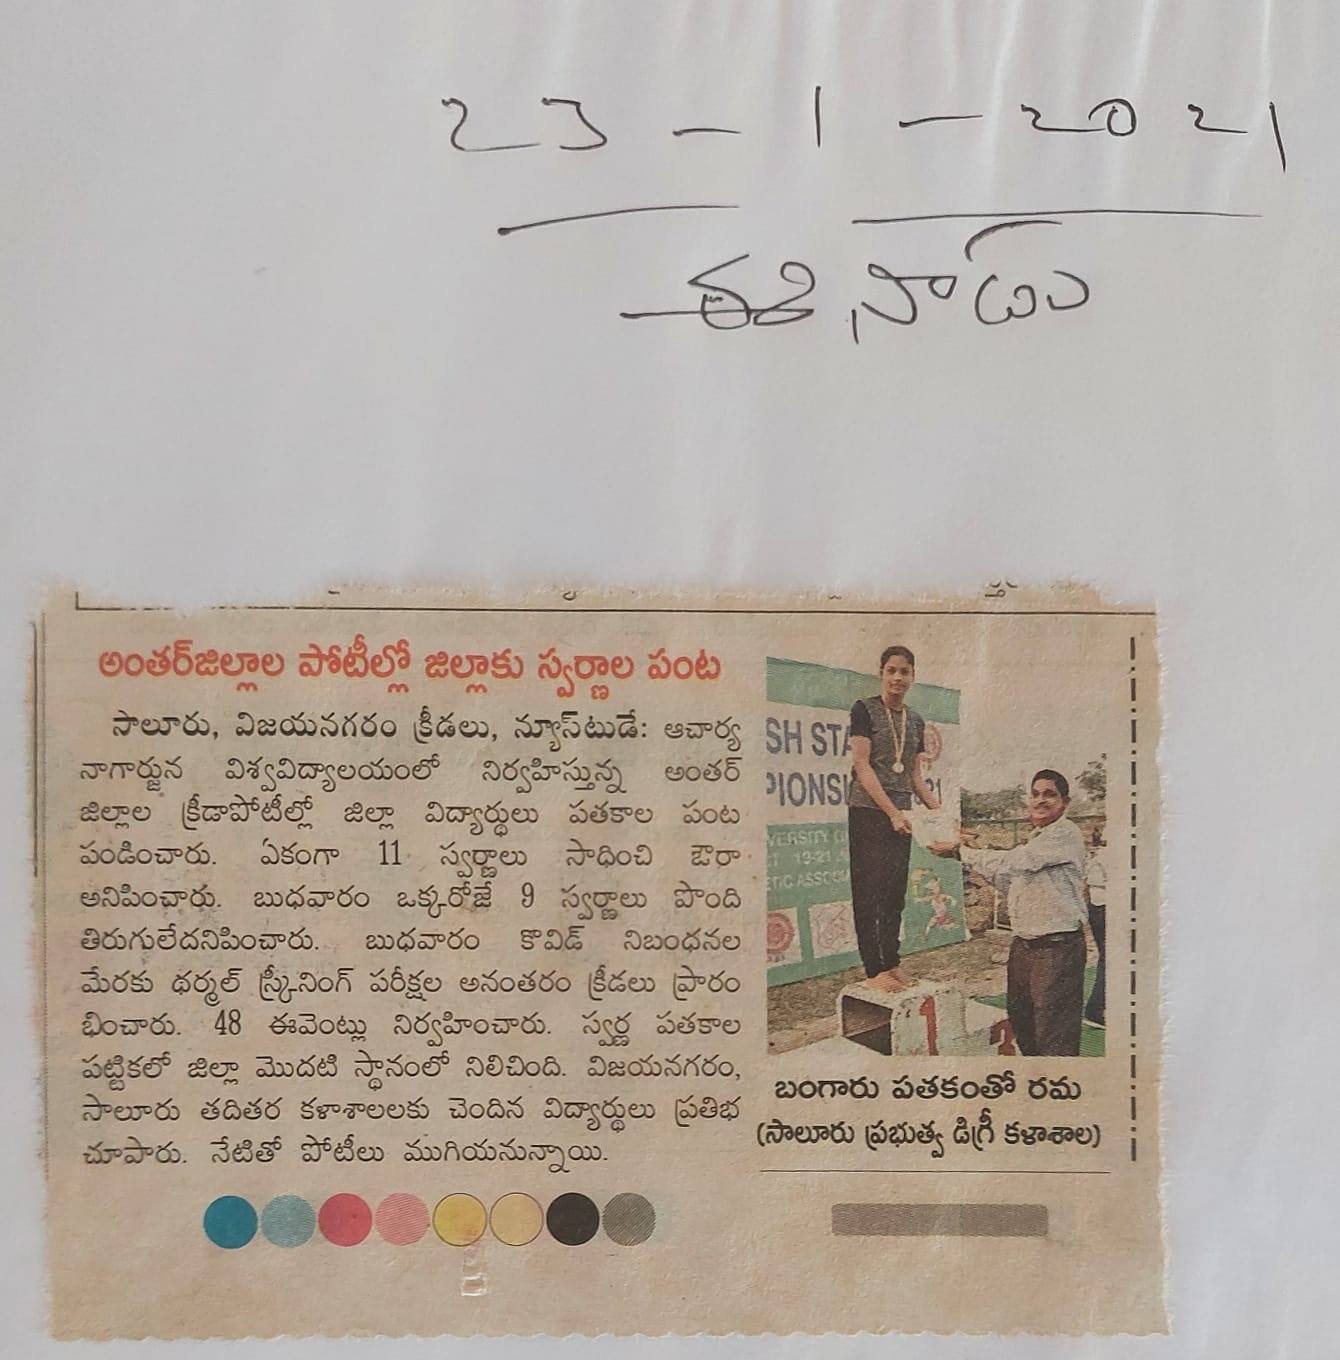 23-1-2021
ఈనాడు
అంతర్‌జిల్లాల పోటీల్లో జిల్లాకు స్వర్ణాల పంట
సాలూరు, విజయనగరం క్రీడలు, న్యూస్‌టుడే: ఆచార్య
నాగార్జున విశ్వవిద్యాలయంలో నిర్వహిస్తున్న అంతర్
జిల్లాల క్రీడాపోటీల్లో జిల్లా విద్యార్థులు పతకాల పంట
పండించారు. ఏకంగా 11 స్వర్ణాలు సాధించి ఔరా
అనిపించారు. బుధవారం ఒక్కరోజే 9 స్వర్ణాలు పొంది
తిరుగులేదనిపించారు. బుధవారం కొవిడ్ నిబంధనల
మేరకు థర్మల్ స్క్రీనింగ్ పరీక్షల అనంతరం క్రీడలు ప్రారం
భించారు. 48 ఈవెంట్లు నిర్వహించారు. స్వర్ణ పతకాల
పట్టికలో జిల్లా మొదటి స్థానంలో నిలిచింది. విజయనగరం,
సాలూరు తదితర కళాశాలలకు చెందిన విద్యార్థులు ప్రతిభ
చూపారు. నేటితో పోటీలు ముగియనున్నాయి.
SH STA
PIONSH 21
VERSITY G
T 19-21
ETIC ASSOC
1
బంగారు పతకంతో రమ
(సాలూరు ప్రభుత్వ డిగ్రీ కళాశాల)